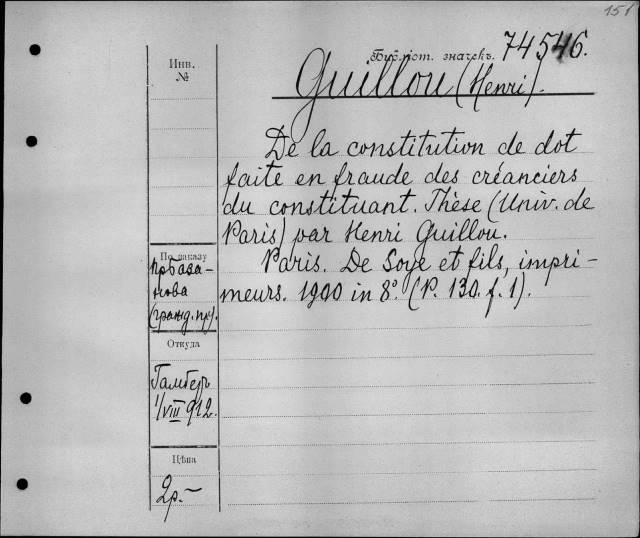 151
Библіот. значекъ. 74546.
Инв.
№
Guillou (Henri).
De la constitution de dot
faite en fraude des créanciers
du constituant. Thèse (Univ. de
Paris) par Henri Guillou.
Paris. De Soye et fils, impri-
meurs. 1900 in 8º. (P. 130. f. 1).
По заказу
пр. База-
нова
(гражд. пр).
Откуда
Гамбер
1/VIII 912.
Цѣна
2р.–